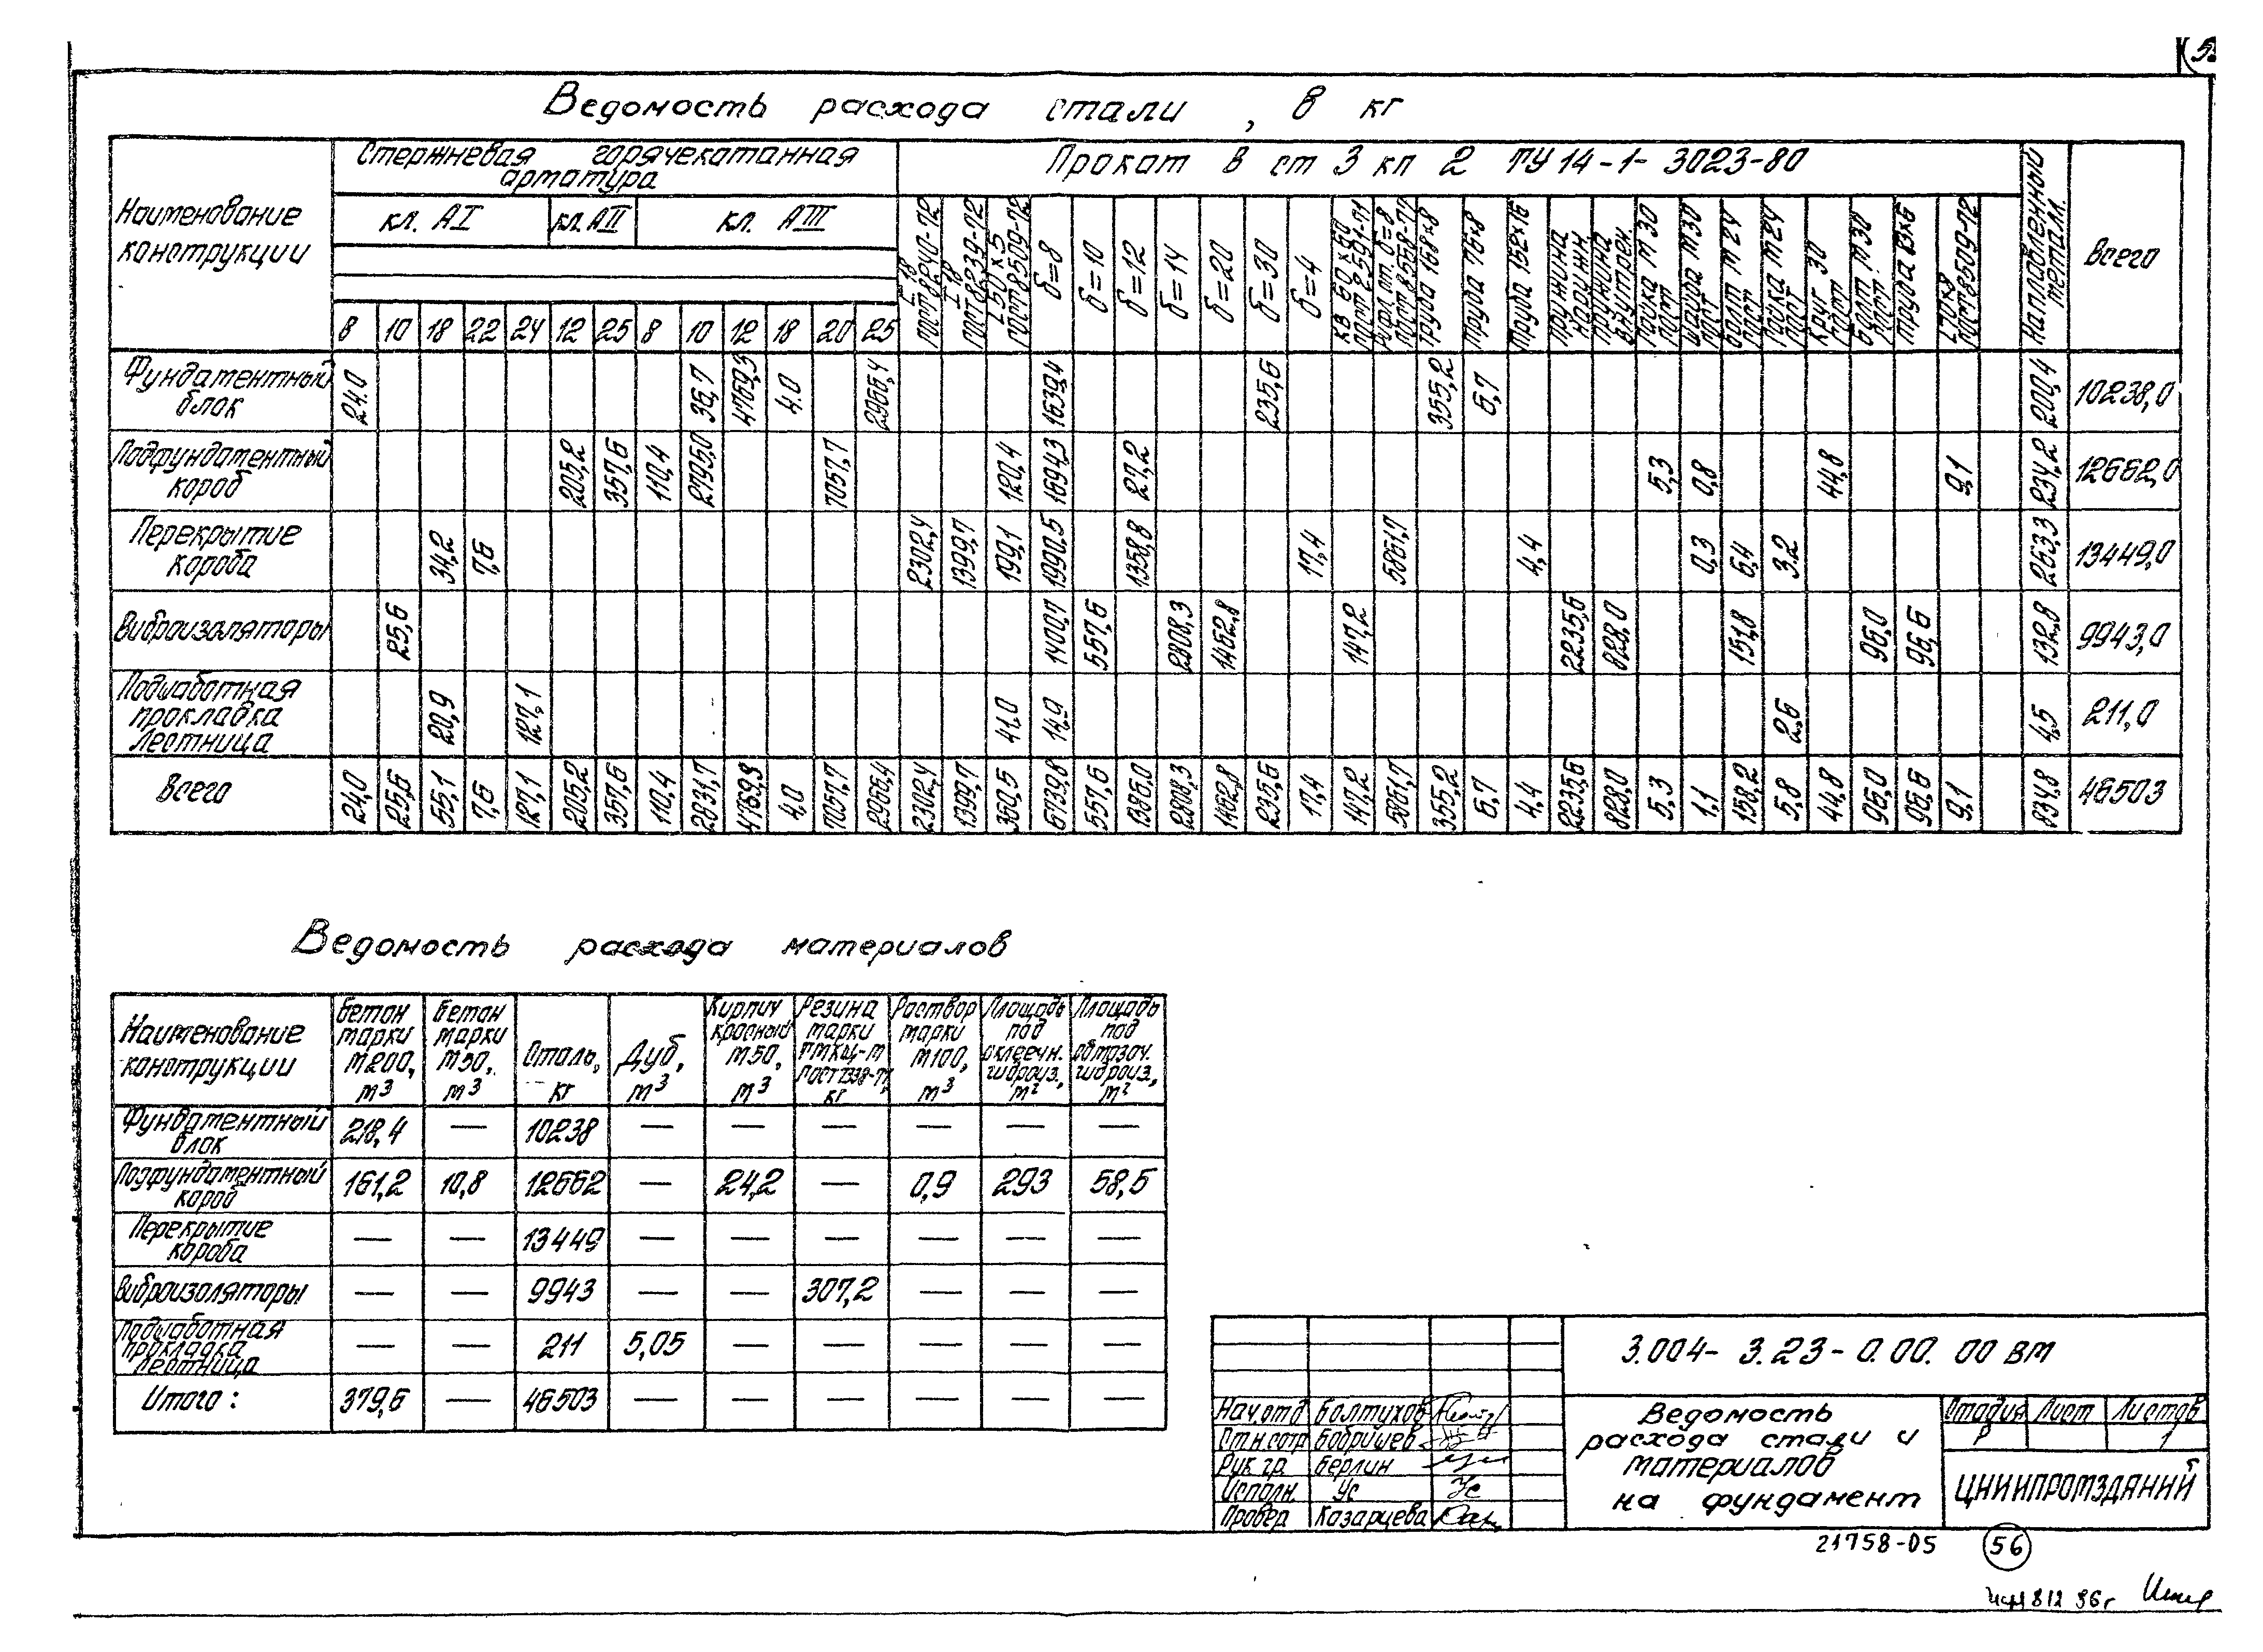 Ведомость расхода стали, в кг
Наименование конструкции
Стержневая горячекатанная арматура
Прокат В ст 3 кп 2 ТУ 14-1-3023-80
Наплавленный металл.
Всего
кл. АI
кл. АII
кл. АIII
8 10 18 22 24 12 25 8 10 12 18 20 25
[ 18 ГОСТ 8240-72
I 18 ГОСТ 8239-72
L 50×5 ГОСТ 8509-72
δ=8
δ=10
δ=12
δ=14
δ=20
δ=30
δ=4
КВ 50×50 ГОСТ 2591-71
Рифл. ст. δ=8 ГОСТ 8568-77
Труба 168×8
Труба 76×8
Труба 152×16
Пружина наружн
Пружина внутрен
Гайка М30 ГОСТ
Шайба М30 ГОСТ
Болт М24 ГОСТ
Гайка М24 ГОСТ
Круг 30 ГОСТ
Болт М30 ГОСТ
ГОСТ 8509-72
Фундаментный блок 24.0 36,7 4769,3 4.0 2966,4 1639,4 235,6 355,2 6,7 200,4 10238,0
Подфундаментный короб 205,2 357,6 110,4 2795,0 7057,7 120,4 1694,3 27,2 5,3 0,8 44,8 9,1 234,2 12662,0
Перекрытие короба 34,2 7,6 2302,4 1399,7 199,1 1990,5 1358,8 17,4 5861,7 4,4 0,3 6,4 3.2 263,3 13449,0
Виброизоляторы 25,6 1400,7 557,6 2808,3 1462,8 147,2 2235,6 828,0 151,8 96,0 96,6 132,8 9943,0
Подшаботная прокладка лестница 20,9 127,1 41.0 14,9 2,6 4,5 211,0
Всего 24,0 25,6 55,1 7,6 127,1 205,2 357,6 110,4 2831,7 4769,3 4,0 7057,7 2966,4 2302,4 1399,7 360,5 6739,8 557,6 1386,0 2808,3 1462,8 235,6 17,4 147,2 5861,7 355,2 6,7 4,4 2235,6 828,0 5,3 1,1 158,2 5,8 44,8 96,0 96,6 9,1 834,8 46503
Ведомость расхода материалов
Наименование конструкции
Бетон марки М200, м3
Бетон марки М50, м3
Сталь, кг
Дуб, м3
Кирпич красный М50, м3
Резина марки ТМКЩ-М ГОСТ 7338-77, кг
Раствор марки М100, м3
Площадь под оклеечн. гидроиз., м2
Площадь под обмазоч. гидроиз., м2
Фундаментный блок 218,4 — 10238 — — — — — —
Подфундаментный короб 161,2 10,8 12662 — 24,2 — 0,9 293 58,5
Перекрытие короба — — 13449 — — — — — —
Виброизоляторы — — 9943 — — 307,2 — — —
Подшаботная прокладка лестница — — 211 5,05 — — — — —
Итого: 379,6 — 46503 — — — — — —
3.004-3.23-0.00.00 ВМ
Нач.отд Болтухов
Ст.н.сотр Бобришев
Рук гр. Берлин
Исполн. Ус
Провер Казарцева
Ведомость
расхода стали и
материалов
на фундамент
Стадия Лист Листов
Р 1
ЦНИИПРОМЗДАНИЙ
21758-05 56